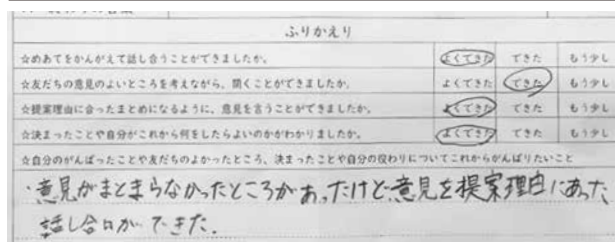 ふりかえり
☆めあてをかんがえて話し合うことができましたか。 よくできた できた もう少し
☆友だちの意見のよいところを考えながら、聞くことができましたか。 よくできた できた もう少し
☆提案理由に合ったまとめになるように、意見を言うことができましたか。 よくできた できた もう少し
☆決まったことや自分がこれから何をしたらよいのかがわかりましたか。 よくできた できた もう少し
☆自分のがんばったことや友だちのよかったところ、決まったことや自分の役わりについてこれからがんばりたいこと
・意見がまとまらなかったところがあったけど意見を提案理由にあった
話し合いができた.